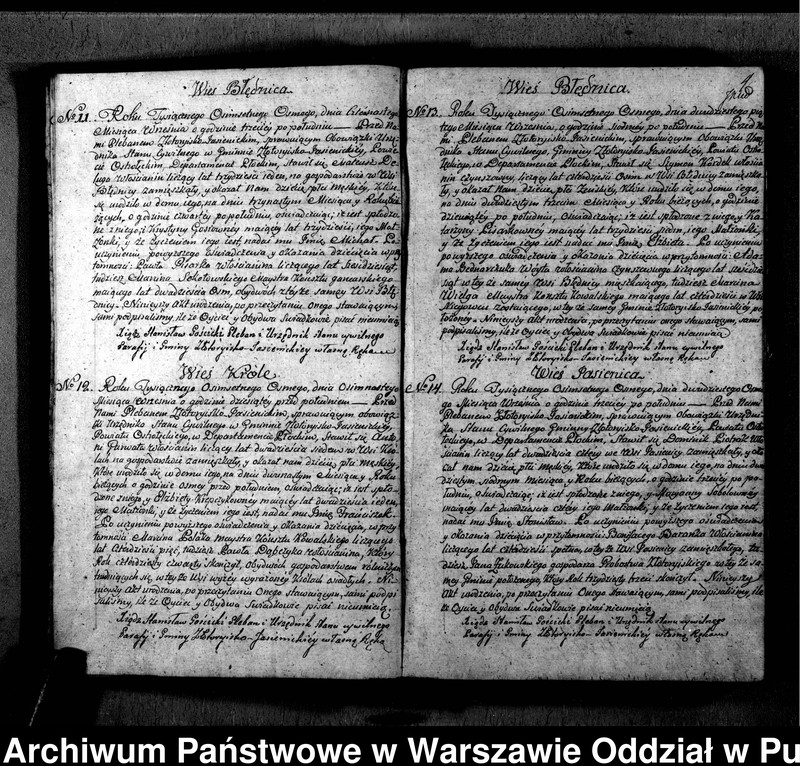 Wieś Błędnica
No 11. Roku Tysiącznego Osimsetnego Osmego, dnia
Miesiąca Września o godzinie trzeciej po południu — Przed Na-
mi Plebanem Złotoryisko Jasienickim, sprawującym Obowiązki Urzę-
dnika Stanu Cywilnego w Gminie Złotoryisko Jasienickiey, Powia-
cie Ostrołęckim, Departamencie Płockim, Stawił się Mateusz
Włoscianin liczący lat trzydzieści ieden, na gospodarstwie w Wsi
Błędnicy zamięszkały, y okazał Nam dziecię płci męskiey, które
się urodziło w domu, iego, na dniu trzynastym Miesiąca y Roku bie-
żących, o godzinie czwartey po południu, oświadczaiąc, iż iest spłodzo-
ne z niego, i Krystyny Gostowney maiącey lat trzydzieści, iego Mał-
żonki, y że życzeniem iego iest nadać mu Imię Michał. Po
uczynieniu powyższego oświadczenia y okazania dziecięcia w przy-
tomności Pawła Pisarka Włoscianina liczącego lat
tudzież Marcina Maystra Kunsztu
maiącego lat dwadzieścia Osm, obydwuch teyże samey Wsi Błę-
dnicy. Ninieyszy Akt urodzenia, po przeczytaniu Onego stawaiącym,
sami podpisaliśmy, ile że Oyciec y Obydwa Swiadkowie pisać nieumieią.
Xiądz Stanisław Gościcki Pleban i Urzędnik stanu cywilnego
Parafij i Gminy Złotoryisko-Jasienickiey własną Ręką
Wieś Króle
No 12. Roku Tysiącznego Osimsetnego Osmego, dnia Osimnastego
Miesiąca Września o godzinie dziesiątey przed południem — Przed
Nami Plebanem Złotoryisko Jasienickim, sprawującym obowiąz-
ki Urzędnika Stanu Cywilnego w Gminie Złotoryisko-Jasienickiey,
Powiatu Ostrołęckiego, w Departamencie Płockim, Stawił się Anto-
ni Włoscianin liczący lat dwadzieścia siedem w Wsi Kró-
lach na gospodarstwie zamięszkały, y okazał Nam dziecię płci męskiey,
które urodziło się w domu iego, na dniu dwunastym Miesiąca y Roku
bieżących o godzinie osmey przed południem, oświadczaiąc, iż iest spło-
dzone z niego, y Elżbiety maiącey lat dwadzieścia ieden,
iego Małżonki, y że życzeniem iego iest, nadać mu Imię Franciszek.
Po uczynieniu powyższego oświadczenia y Okazania dziecięcia, w przy-
tomności Marcina Polaka maystra Kunsztu Kowalskiego liczącego
lat Czterdzieści pięć, tudzież Pawła Dąbczyka włoscianina, który
Rok czterdziesty czwarty skończył, obydwuch gospodarstwem rolniczym
trudniących się, w teyże Wsi wyżey wyrażoney Królach osiadłych. Ni-
nieyszy Akt urodzenia, po przeczytaniu Onego stawaiącym, sami podpi-
saliśmy, ile że Oyciec y Obydwa Swiadkowie pisać nieumieią.
Xiądz Stanisław Gościcki Pleban i Urzędnik stanu cywilnego
Parafij i Gminy Złotoryisko-Jasienickiey własną Ręką
4
Wieś Błędnica.
No 13. Roku Tysiącznego Osimsetnego Osmego, dnia dwudziestego pią-
tego Miesiąca Września, o godzinie siodmey po południu — Przed Na-
mi Plebanem Złotoryisko Jasienickim, sprawującym Obowiązki Urzę-
dnika Stanu Cywilnego Gminny Złotoryisko Jasienickiey, Powiatu Ostro-
łęckiego, w Departamencie Płockim, Stawił się Szymon Kardek włoscia-
nin czynszowy, liczący lat czterdzieści Osim w Wsi Błędnicy zamięszka-
ły, y okazał Nam dziecię płci Żeńskiey, które urodziło się w domu iego,
na dniu dwudziestym trzecim Miesiąca y Roku bieżących, o godzinie
dziewiątey po południu, Oświadczaiąc, iż iest spłodzone z niego, y Ka-
tarzyny Pisarkowney maiącey lat trzydzieści siedem, iego Małżonki,
y że życzeniem iego iest nadać mu Imię Elżbieta. Po uczynieniu
powyższego oświadczenia y okazania dziecięcia w przytomności Ada-
ma Bednarczuka Woyta włoscianina czynszowego liczącego lat
siąt w teyże samey Wsi Błędnicy mieszkaiącego, tudzież Marcina
Wielga Maystra Kunsztu Kowalskiego maiącego lat czterdzieści w teyże
Mieyscu zostaiącego, w teyże samey Gminie Złotoryisko Jasienickiey po-
łoney. Ninieyszy Akt urodzenia, po przeczytaniu Onego stawaiącym, sami
podpisaliśmy, ile że Oyciec y Obydwa Swiadkowie pisać nieumieią.
Xiądz Stanisław Gościcki Pleban i Urzędnik stanu cywilnego
Parafij i Gminy Złotoryisko-Jasienickiey własną Ręką
Wieś Jasienica.
No 14. Roku Tysiącznego Osimsetnego Osmego, dnia dwudziestego Osme-
go Miesiąca Września o godzinie trzeciey po południu — Przed Nami
Plebanem Złotoryisko Jasienickim, sprawującym Obowiązki Urzędni-
ka Stanu Cywilnego Gminny Złotoryisko-Jasienickiey, Powiatu Ostro-
łęckiego, w Departamencie Płockim, Stawił się Dominik Pietrak Wło-
scianin liczący lat dwadzieścia cztery we Wsi Jasienicy zamięszkały, y oka-
zał Nam dziecię płci męskiey, które urodziło się w domu iego, na dniu dwu-
dziestym siodmym miesiąca y Roku bieżących, o godzinie trzeciey po po-
łudniu, oświadczaiąc, iż iest spłodzone z niego, y Maryanny Sobolewney
maiącey lat dwadzieścia cztery iego Małżonki, y że życzeniem iego iest,
nadać mu Imię Stanisław. Po uczynieniu powyższego oświadczenia
y okazania dziecięcia w przytomności Bonifacego Baranka Włoscianina
liczącego lat czterdzieści w teyże Wsi Jasienicy zamięszkałego, tu-
dzież Jana Żukowskiego gospodarza Probostwa Złotoryiskiego w teyże sa-
mey Gminie położonego, który Rok trzydziesty trzeci skończył. Ninieyszy
Akt urodzenia, po przeczytaniu Onego stawaiącym, sami podpisaliśmy, ile
że Oyciec y Obydwa Swiadkowie pisać nieumieią.
Xiądz Stanisław Gościcki Pleban i Urzędnik stanu cywilnego
Parafij i Gminy Złotoryisko-Jasienickiey własną Ręką
Archiwum Państwowe w Warszawie Oddział w Pu